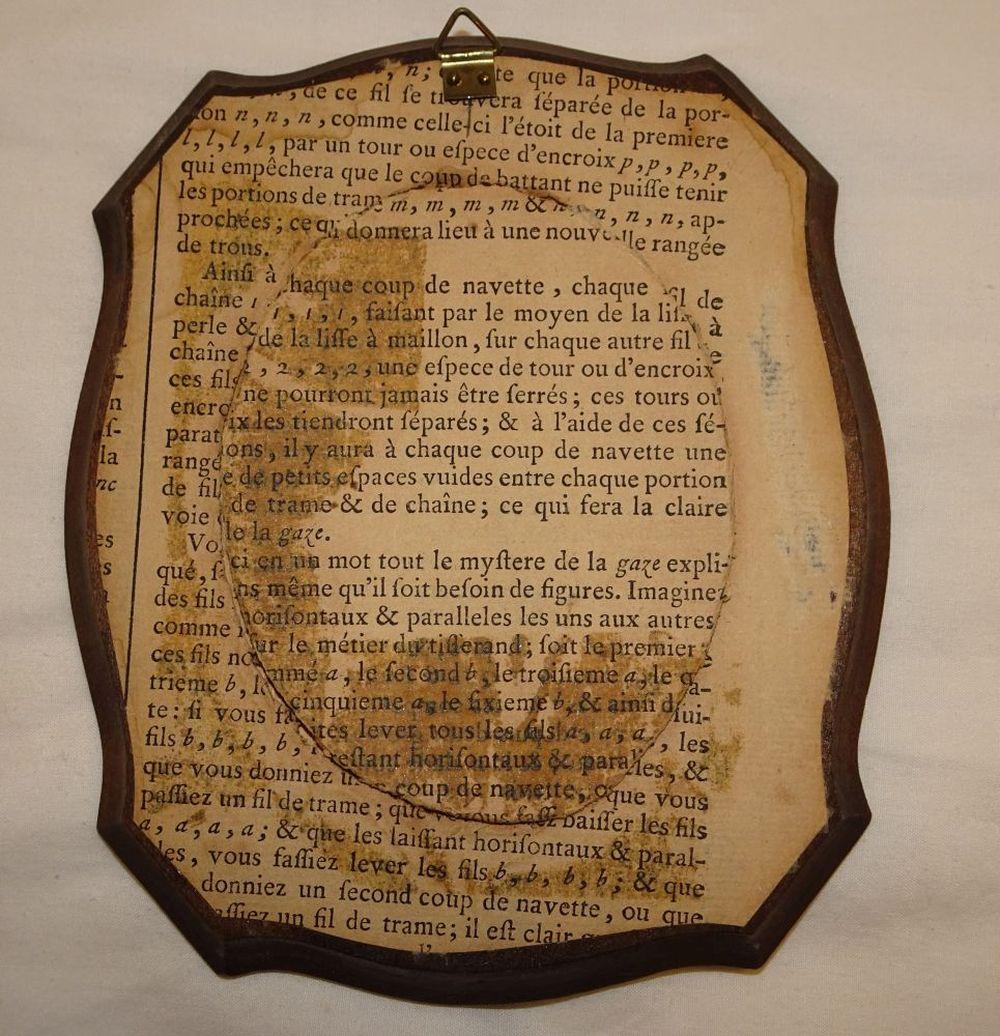 n; te que la portion
, de ce fil ſe trouvera ſéparée de la por-
tion n, n, n, comme celle-ci l'étoit de la premiere
l, l, l, l, par un tour ou eſpece d'encroix p, p, p, p,
qui empêchera que le coup de battant ne puiſſe tenir
les portions de trame m, m, m, m & n, n, n, n, ap-
prochées ; ce qui donnera lieu à une nouvelle rangée
de trous.
Ainſi à chaque coup de navette, chaque fil de
chaîne 1, 1, 1, 1, faiſant par le moyen de la liſſe à
perle & de la liſſe à maillon, ſur chaque autre fil de
chaîne 2, 2, 2, 2, une eſpece de tour ou d'encroix
ces fils ne pourront jamais être ſerrés ; ces tours ou
encroix les tiendront ſéparés ; & à l'aide de ces ſé-
parations, il y aura à chaque coup de navette une
rangée de petits eſpaces vuides entre chaque portion
de fil de trame & de chaîne ; ce qui fera la claire
voie de la gaze.
Voici en un mot tout le myſtere de la gaze expli-
qué, ſans même qu'il ſoit beſoin de figures. Imaginez
des fils horiſontaux & paralleles les uns aux autres
comme ſur le métier du tiſſerand ; ſoit le premier :
ces fils nommé a, le ſecond b, le troiſieme a, le qua-
trieme b, le cinquieme a, le ſixieme b, & ainſi de ſui-
te : ſi vous faites lever tous les fils a, a, a, a, les
fils b, b, b, b, reſtant horiſontaux & paralleles, &
que vous donniez un coup de navette, ou que vous
paſſiez un fil de trame ; que vous faſſ baiſſer les fils
a, a, a, a ; & que les laiſſant horiſontaux & paral-
les, vous faſſiez lever les fils b, b, b, b ; & que
donniez un ſecond coup de navette, ou que
aſſiez un fil de trame ; il eſt clair
n
ſ-
la
nc
es
s